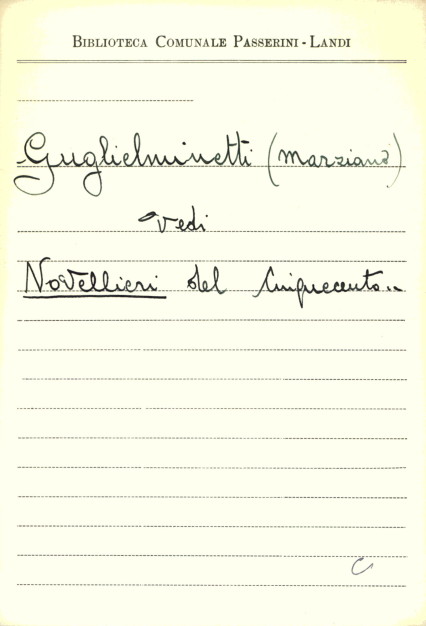 BIBLIOTECA COMUNALE PASSERINI - LANDI
Guglielminetti (Marziano)
vedi
Novellieri del Cinquecento..
C